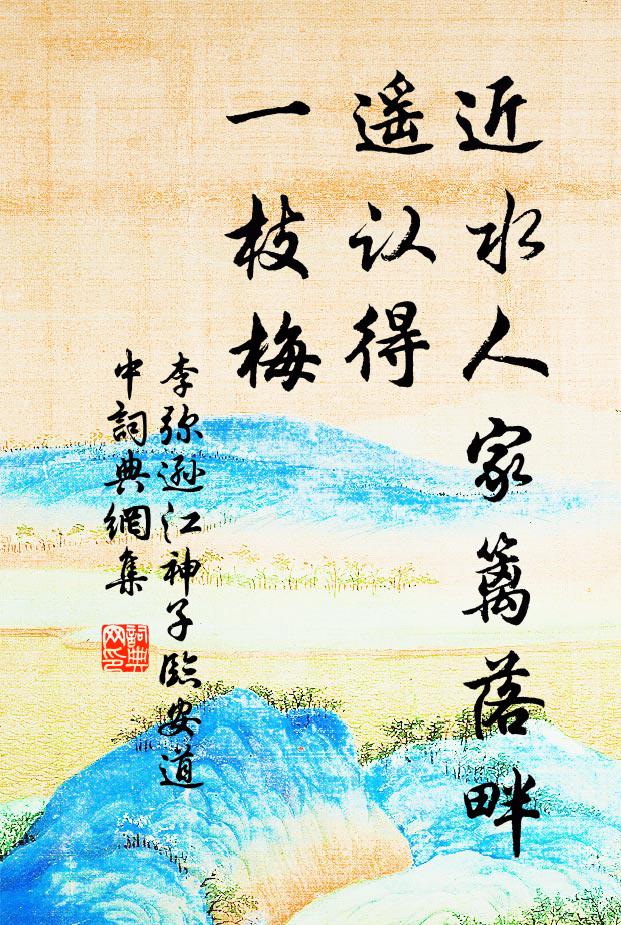 近水人家篱落畔
遥认得
一枝梅
李弥逊江神子臨安道
中詞典網集
詞典网印